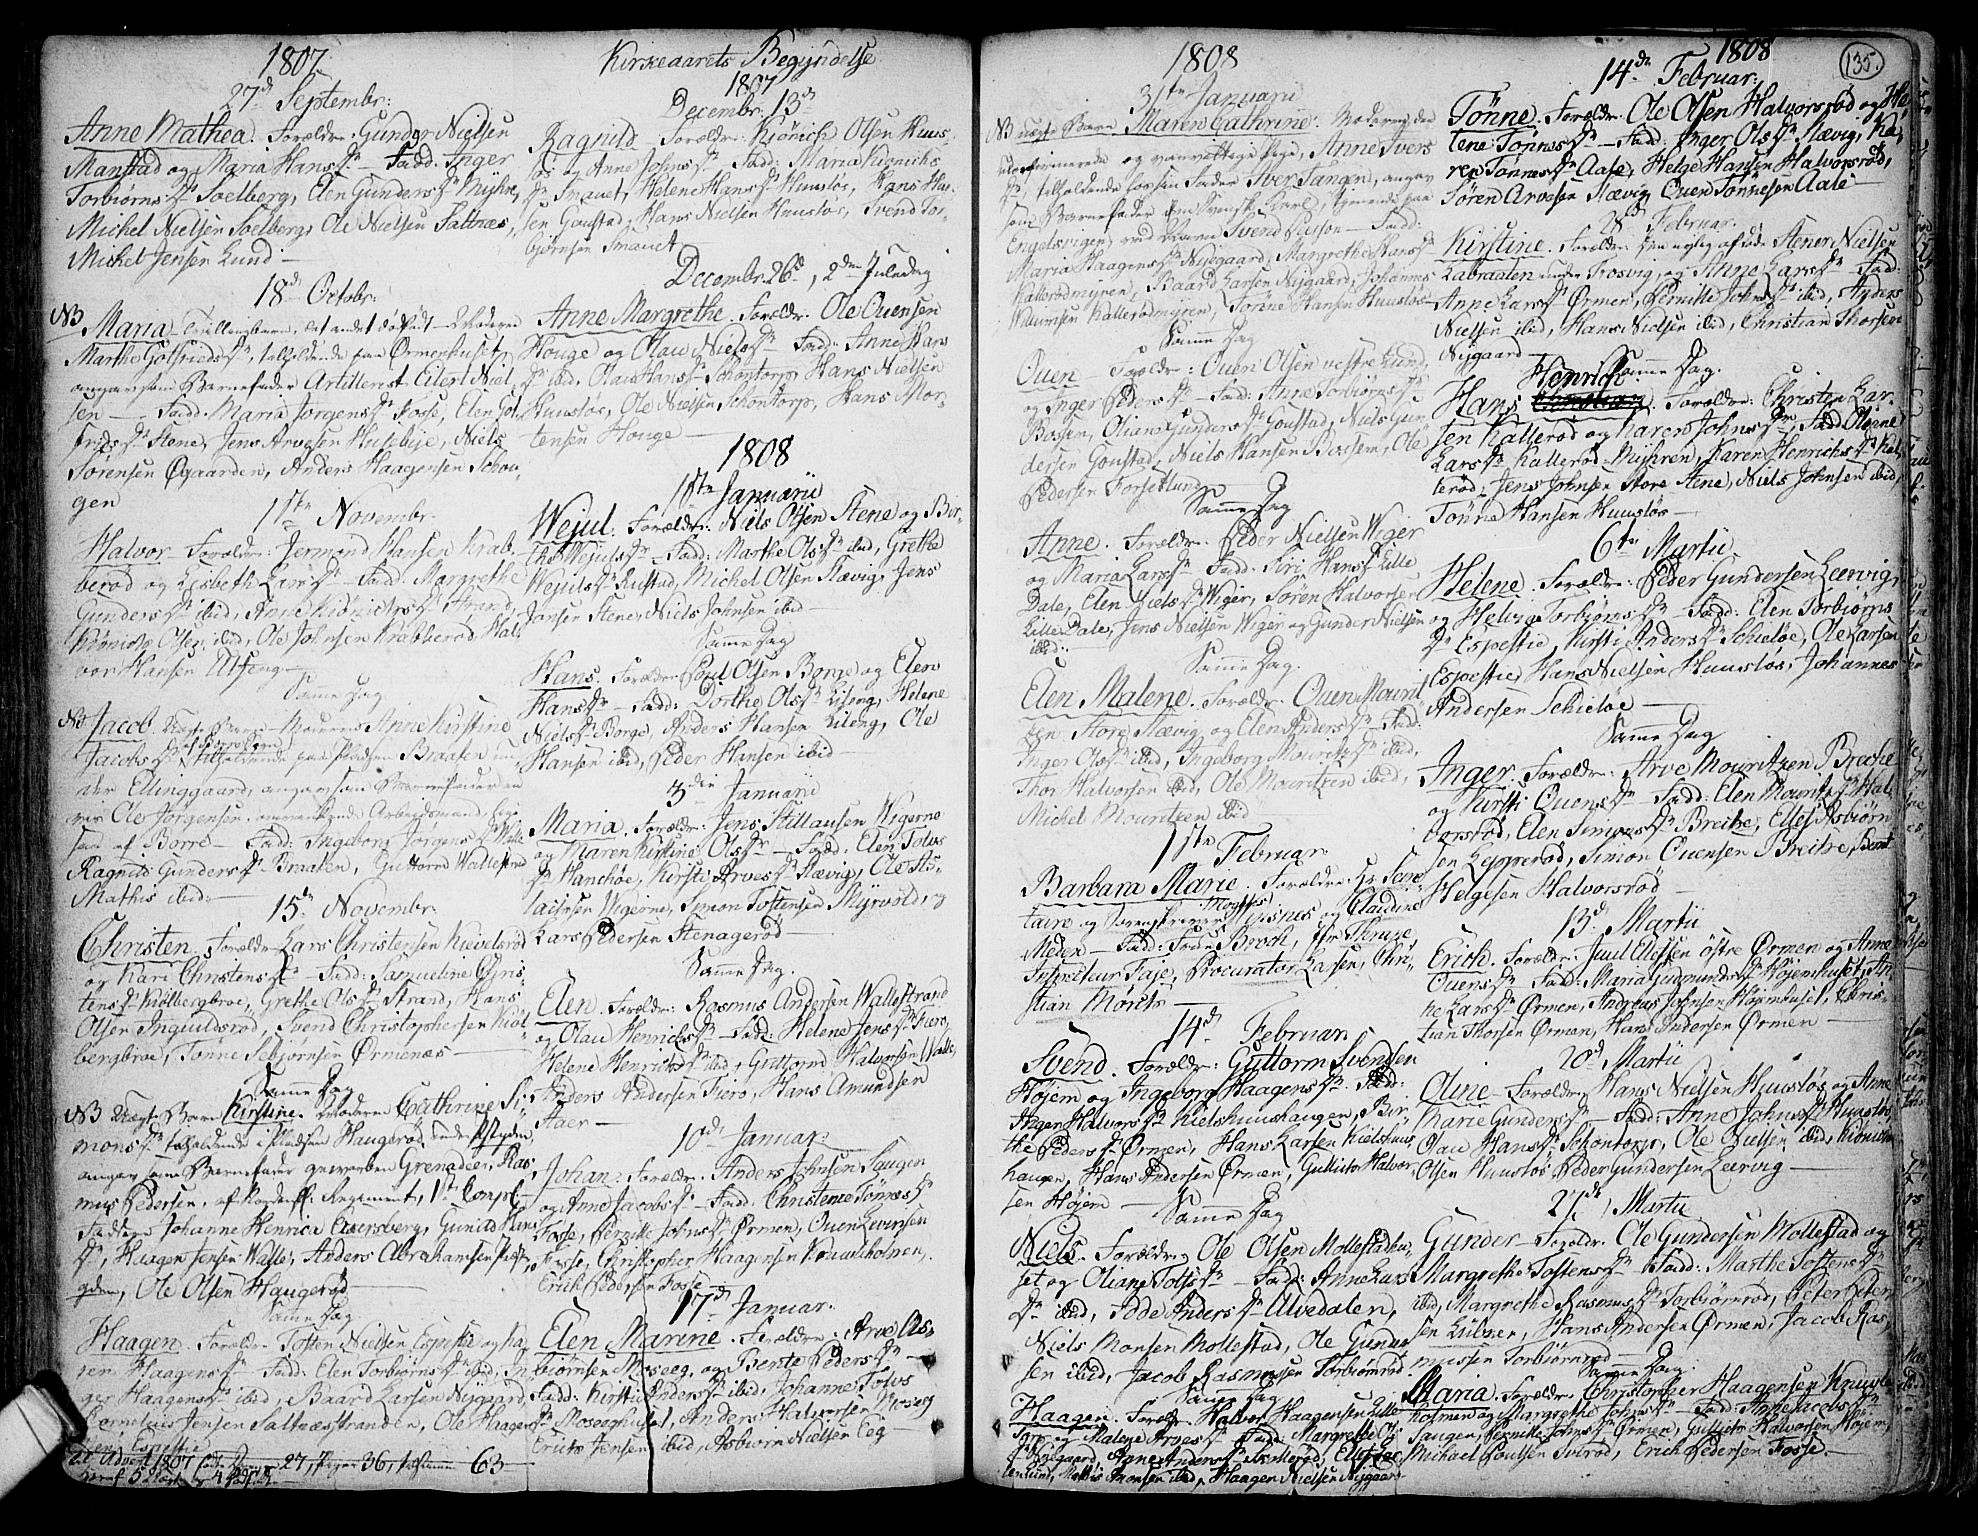 1807
27d Septembr:
Anne Mathea. Forældr: Gunder Nielsen
Manstad og Maria Hansdr — Fadd: Inger
Torbiørnsdr Soelberg, Elen Gundersdr Myhre,
Michel Nielsen Soelberg, Ole Nielsen Saltnæs,
Michel Jensen Lund —
18d Octobr:
NB Maria — Tvillingbarn, det andet dødfødt — Moderen
Marthe Gotfriedsdr, tilholdende paa Ørmenhuset,
angav som Barnefader Artillerist Eilert Niel,
sen — Fadd: Maria Jørgensdr Fosse, Elen Got,
fridsdr Stene, Jens Arvesen Husebye, Niels
Sørensen Øgaarden, Anders Haagensen Schou,
gen
1ste Novembr.
Halvor. Forældr: Jermond Hansen Krab,
berød og Lisbeth Larsdr — Fadd: Margrethe
Gundersdr ibid, Anne Kiønichsdr Strand,
Kiønich Olsen ibid, Ole Johnsen Krabberød, Hal,
vor Hansen Utfeng —
Samme Dag
NB Jacob. Uægte Barn. Moderen Anne Kirstine
Jacobsdr tilholdende paa Pladsen Braaten un,
der Ellinggaard, angav som Barnefader
Ole Jørgensen, Arbeidsmand,
af Borre — Fadd: Ingeborg Jørgensdr Walle
Ragnild Gundersdr Braaten, Guttorm Wallestrand
Mathis ibid —
15d Novembr:
Christen. Forældr: Lars Christensen Kievelsrød
og Kari Christensdr — Fadd: Samueline Chris,
tensdr Kiølbergbroe, Grethe Olsdr Strand, Hans
Olsen Ingvuldsrød, Svend Christophersen Kiøl,
bergbroe, Tønne Sebjørnsen Ørmenæs —
Samme Dag
NB Uægte Barn Kirstine. Moderen Cathrine Si,
monsdr tilholdende i Pladsen Haugerød,
angav som Barnefader geworben Grenadeer Ras,
mus Pedersen, af Regiment, 1ste Compl —
Faddere Johanne Henrica Gunild Hans
dr, Haagen Jensen Walle, Anders Abrahamsen
Ole Olsen Haugerød —
Samme Dag
Haagen. Forældr: Tosten Nielsen Espestie og Ka,
ren Haagensdr — Fadd: Elen Torbiørnsdr ibid, In,
ger Haagensdr ibid, Baard Larsen Nygaard,
Cornelius Jensen Saltnæstranden, Ole Haagen
sen Espestie
1807 27, Piger 36, tilsamme 63 —
Kirkeaarets Begyndelse
1807
Decembr. 13d
Ragnild. Forældr: Kiønich Olsen Huus,
løs og Anne Johnsdr — Fadd: Maria Kiønichs
dr Smauet, Helene Hansdr Huusløs, Hans Han,
sen Goustad, Hans Nielsen Huusløs, Svend Tor,
bjørnsen Smauet —
Decembr. 26d, 2den Juledag
Anne Margrethe. Forældr: Ole Ouensen
Houge og Olau Nielsdr — Fadd: Anne Hans
dr ibid, Olau Hansdr Schontorp, Hans Nielsen
Huusløs, Ole Nielsen Schontorp, Hans Mor,
tensen Houge —
1808
1ste Januarii
Wejul. Forældr: Niels Olsen Stene og Bir,
the Wejulsdr — Fadd: Marthe Olsdr ibid, Grethe
Wejulsdr Rustad, Michel Olsen Slævig, Jens
Jansen Stene, Niels Johnsen ibid —
Samme Dag
Hans. Forældr: Poul Olsen Borge og Elen
Hansdr — Fadd: Dorthe Olsdr Lileng, Helene
Nielsdr Borge, Anders Hansen Lileng, Ole
Hansen ibid, Peder Hansen ibid —
3die Januarii
Maria. Forældr: Jens Stillausen Wigerne
og Maren Kirstine Olsdr — Fadd: Elen Tolvs
dr Hanchøe, Kirsti Arvesdr Slævig, Ole
Wigerne, Simon Tostensen Myrvold, og
Lars Pedersen Stenagerød —
Samme Dag.
Elen. Forældr: Rasmus Andersen Wallestrand
og Olau Henrichsdr — Fadd: Helene Jensdr
Helene Henrichsdr ibid, Guttorm Halvorsen Walle,
Anders Andersen Hans Amundsen
Aaer —
10d Januar:
Johan. Forældr: Anders Johnsen Saugen
og Anne Jacobsdr — Fadd: Christence Tønnesdr
Fosse, Pernille Johnsdr Ørmen, Ouen Levorsen
Fosse, Christopher Haagensen Knuulholmen,
Erich Pedersen Fosse —
17d Januar:
Elen Marine. Forældre: Arve As,
biørnsen Moseeg, og Bente Pedersdr —
Fadd: Kirsti Andersdr ibid, Johanne Tolvs
dr Moseeghuset, Anders Halvorsen Moseeg
Erich Jensen ibid, Asbiørn Nielsen Eeg —
1808
31te Januarii
NB uægte Barn Maren Cathrine. Moderen, den
uconfirmerede og vanvittige Pige, Anne Ivers
dr, tilholdende hos sin Fader Iver Tangen, angav
som Barnefader en Svensk Karl, tjenende paa
Engelsvigen, ved Navn Svend Siesson — Fadd:
Maria Haagensdr Nygaard, Margrethe Hansdr
Kallerødmyren, Baard Larsen Nygaard, Johannes
Willumsen Kallerødmyren, Tønne Hansen Huusløs
Samme Dag
Ouen — Forældr: Ouen Olsen vestre Lund
og Inger Pedersdr — Fadd: Anne Torbiørnsdr
Bossen, Oliana Gundersdr Goustad, Niels Gun,
dersen Goustad, Niels Hansen Bossem, Ole
Pedersen Forsetlund —
Samme Dag
Anne. Forældr: Peder Nielsen Wiger
og Maria Larsdr — Fadd: Siri Hansdr Lille
Dale, Elen Nielsdr Wiger, Søren Halvorsen
Lille Dale, Jens Nielsen Wiger og Gunder Nielsen
ibid —
Samme Dag.
Elen Malene. Forældr: Ouen Mourit,
zen Store Slævig og Elen Andersdr — Fadd:
Inger Olsdr ibid, Ingeborg Mouritzdr ibid,
Thor Halvorsen ibid, Ole Mouritzen ibid,
Michel Mouritzen ibid
11te Februar.
Barbara Marie. Forældre: Hr Secre
taire og Sorenskriver Moyses Gisnes og Claudine
Meden — Fadd: Frue Broch, Jfr Thrupe,
Inspecteur Faye, Procurator Larsen, Chri,
stian Møritz —
14d Februar:
Svend. Forældr: Guttorm Svendsen
Højem og Ingeborg Haagensdr — Fadd:
Inger Halvorsdr Kielshuushaugen, Bir,
the Pedersdr Ørmen, Hans Larsen Kielshuus
haugen, Hans Andersen Ørmen, Gullich Halvor,
sen Højem —
Samme Dag
Niels. Forældr: Ole Olsen Mollestadhu,
set og Oliane Tolfsdr — Fadd: Anne Lars
dr ibid, Sidde Andersdr Alvedalen,
Niels Monsen Mollestad, Ole Gunder
sen ibid, Jacob Rasmussen Torbiørnrød
Samme Dag
Haagen. Forældr: Halvor Haagensen Lille
Torp og Malene Arvesdr — Fadd: Margrethe Ols
dr Nygaard, Anne Andersdr
Mathis Monsen ibid, Haagen Nielsen Nygaard
1808
135.
14de Februar:
Tønne. Forældr: Ole Olsen Halvorsrød og He
lene Tønnesdr — Fadd: Inger Olsdr Slævig, Ka,
ren Tønnesdr Aale, Helge Hansen Halvorsrød,
Søren Arvesen Slævig, Ouen Tønnesen Aale —
28d Februar.
Kirstine. Forældr: Stener Nielsen
Labraaten under Trosvig, og Anne Larsdr — Fadd:
Anne Larsdr Ørmen, Pernille Johnsdr ibid, Anders
Nielsen ibid, Hans Nielsen ibid, Christian Thorsen
Nygaard —
Samme Dag.
Henrich
Hans. Forældre: Christen Lar,
sen Kallerød og Karen Johnsdr, Fadd: Olene
Larsdr Kallerød-Myhren, Karen Henrichsdr Kal,
lerød, Jens Johnsen Store Stene, Niels Johnsen ibid,
Tønne Hansen Huusløs —
6te Martii
Helene. Forældr: Peder Gundersen Leervig,
og Helvig Torbiørnsdr — Fadd: Elen Torbiørns
dr Espestie, Kirsti Andersdr Schieløe, Ole Larsen
Espestie, Hans Nielsen Huusløs, Johannes
Andersen Schieløe —
Samme Dag
Inger. Forældr: Arve Mouritzen Breche
og Kirsti Ouensdr — Fadd: Elen Mouritzdr Hal,
vorsrød, Elen Simonsdr Breche, Ellef Asbiørn
sen Lepperød, Simon Ouensen Breche, Bent
Helgesen Halvorsrød —
13d Martii
Erich. Forældr: Juul Olefsen østre Ørmen og Anne
Ouensdr — Fadd: Maria Gudmundsdr Højemhuset, An,
ne Larsdr Ørmen, Andreas Johnsen Højemhuset, Chris,
tian Thorsen Ørmen, Hans Andersen Ørmen —
20d Martii
Oline — Forældr: Hans Nielsen Huusløs og Anne
Marie Gundersdr — Fadd: Anne Johnsdr Huusløs
Olau Hansdr Schontorp, Ole Nielsen ibid, Kiønich
Olsen Huusløs, Peder Gundersen Leervig —
27de Martii
Gunder — Forældr: Ole Gundersen Mollestad og
Margrethe Tostensdr — Fadd: Marthe Tostensdr
ibid, Margrethe Rasmusdr Torbiørnrød, Peter Peter,
sen Lübner, Hans Andersen Ørmen, Jacob Ras,
mussen Torbiørnrød —
Samme Dag.
Maria. Forældr: Christopher Haagensen Knuul,
holmen og Margrethe Johnsdr — Fadd: Anne Jacobsdr
Saugen, Pernille Johnsdr Ørmen, Gullich Halvorsen Højem,
Michael Poulsen Torød, Erich Pedersen Fosse —